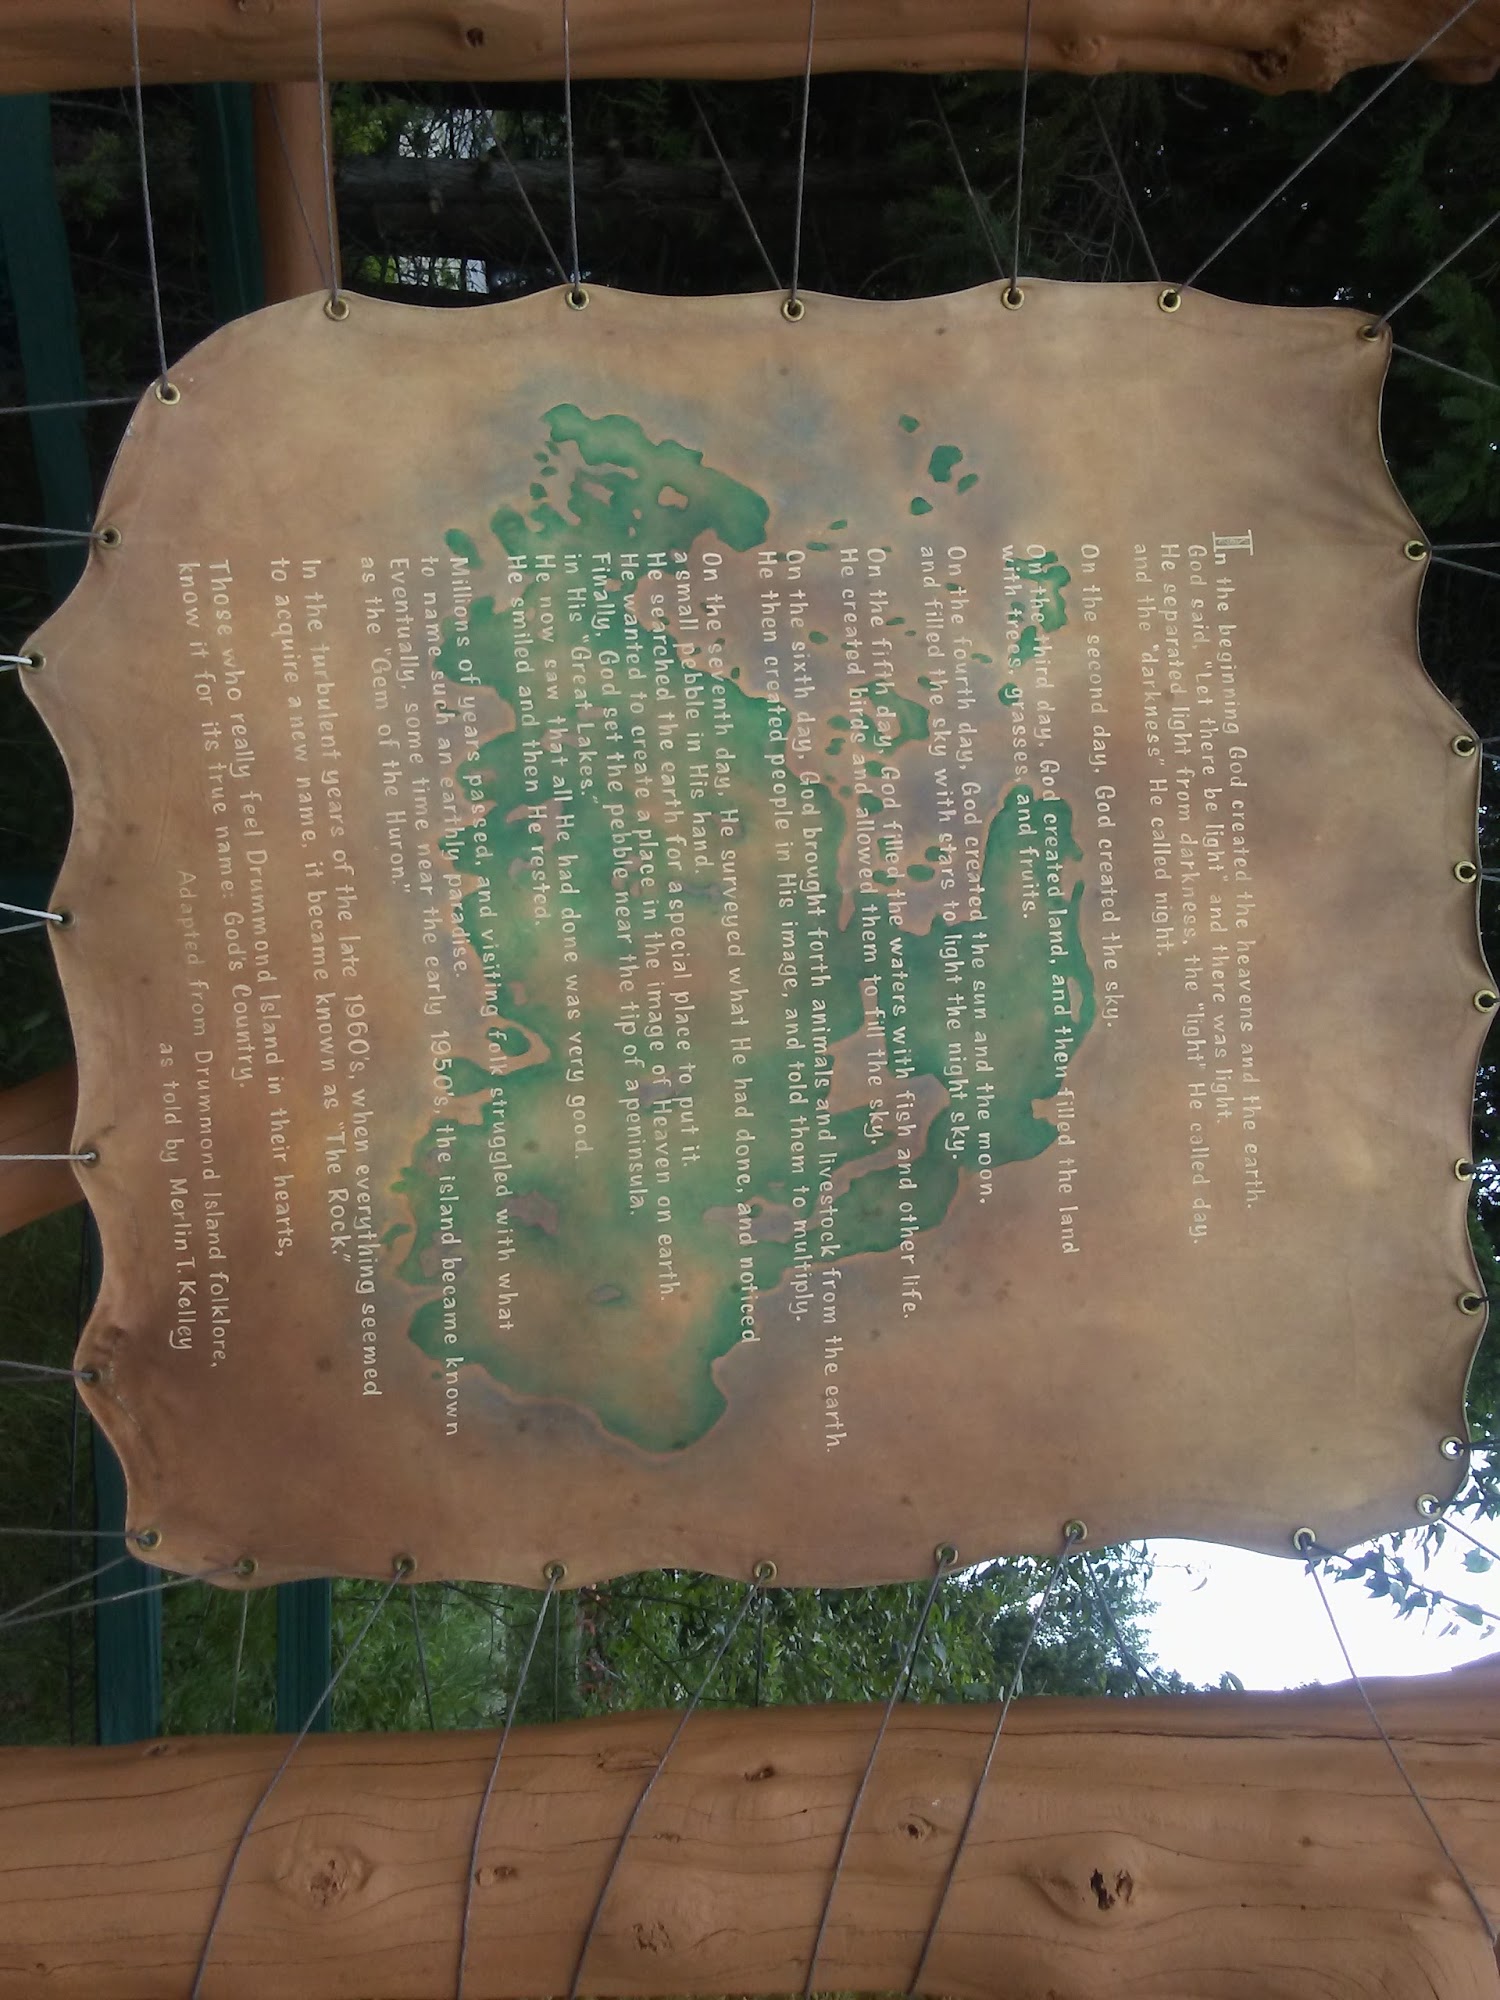 In the beginning God created the heavens and the earth.
God said, "Let there be light" and there was light.
He separated light from darkness, the "light" He called day,
and the "darkness" He called night.
On the second day, God created the sky.
On the third day, God created land, and then filled the land
with trees, grasses and fruits.
On the fourth day, God created the sun and the moon,
and filled the sky with stars to light the night sky.
On the fifth day, God filled the waters with fish and other life.
He created birds and allowed them to fill the sky.
On the sixth day, God brought forth animals and livestock from the earth.
He then created people in His image, and told them to multiply.
On the seventh day, He surveyed what He had done, and noticed
a small pebble in His hand.
He searched the earth for a special place to put it.
He wanted to create a place in the image of Heaven on earth.
Finally, God set the pebble near the tip of a peninsula,
in His "Great Lakes."
He now saw that all He had done was very good.
He smiled and then He rested.
Millions of years passed, and visiting folk struggled with what
to name such an earthly paradise.
Eventually, some time near the early 1950's, the island became known
as the "Gem of the Huron."
In the turbulent years of the late 1960's, when everything seemed
to acquire a new name, it became known as "The Rock."
Those who really feel Drummond Island in their hearts,
know it for its true name: God's Country.
Adapted from Drummond Island folklore,
as told by Merlin T. Kelley